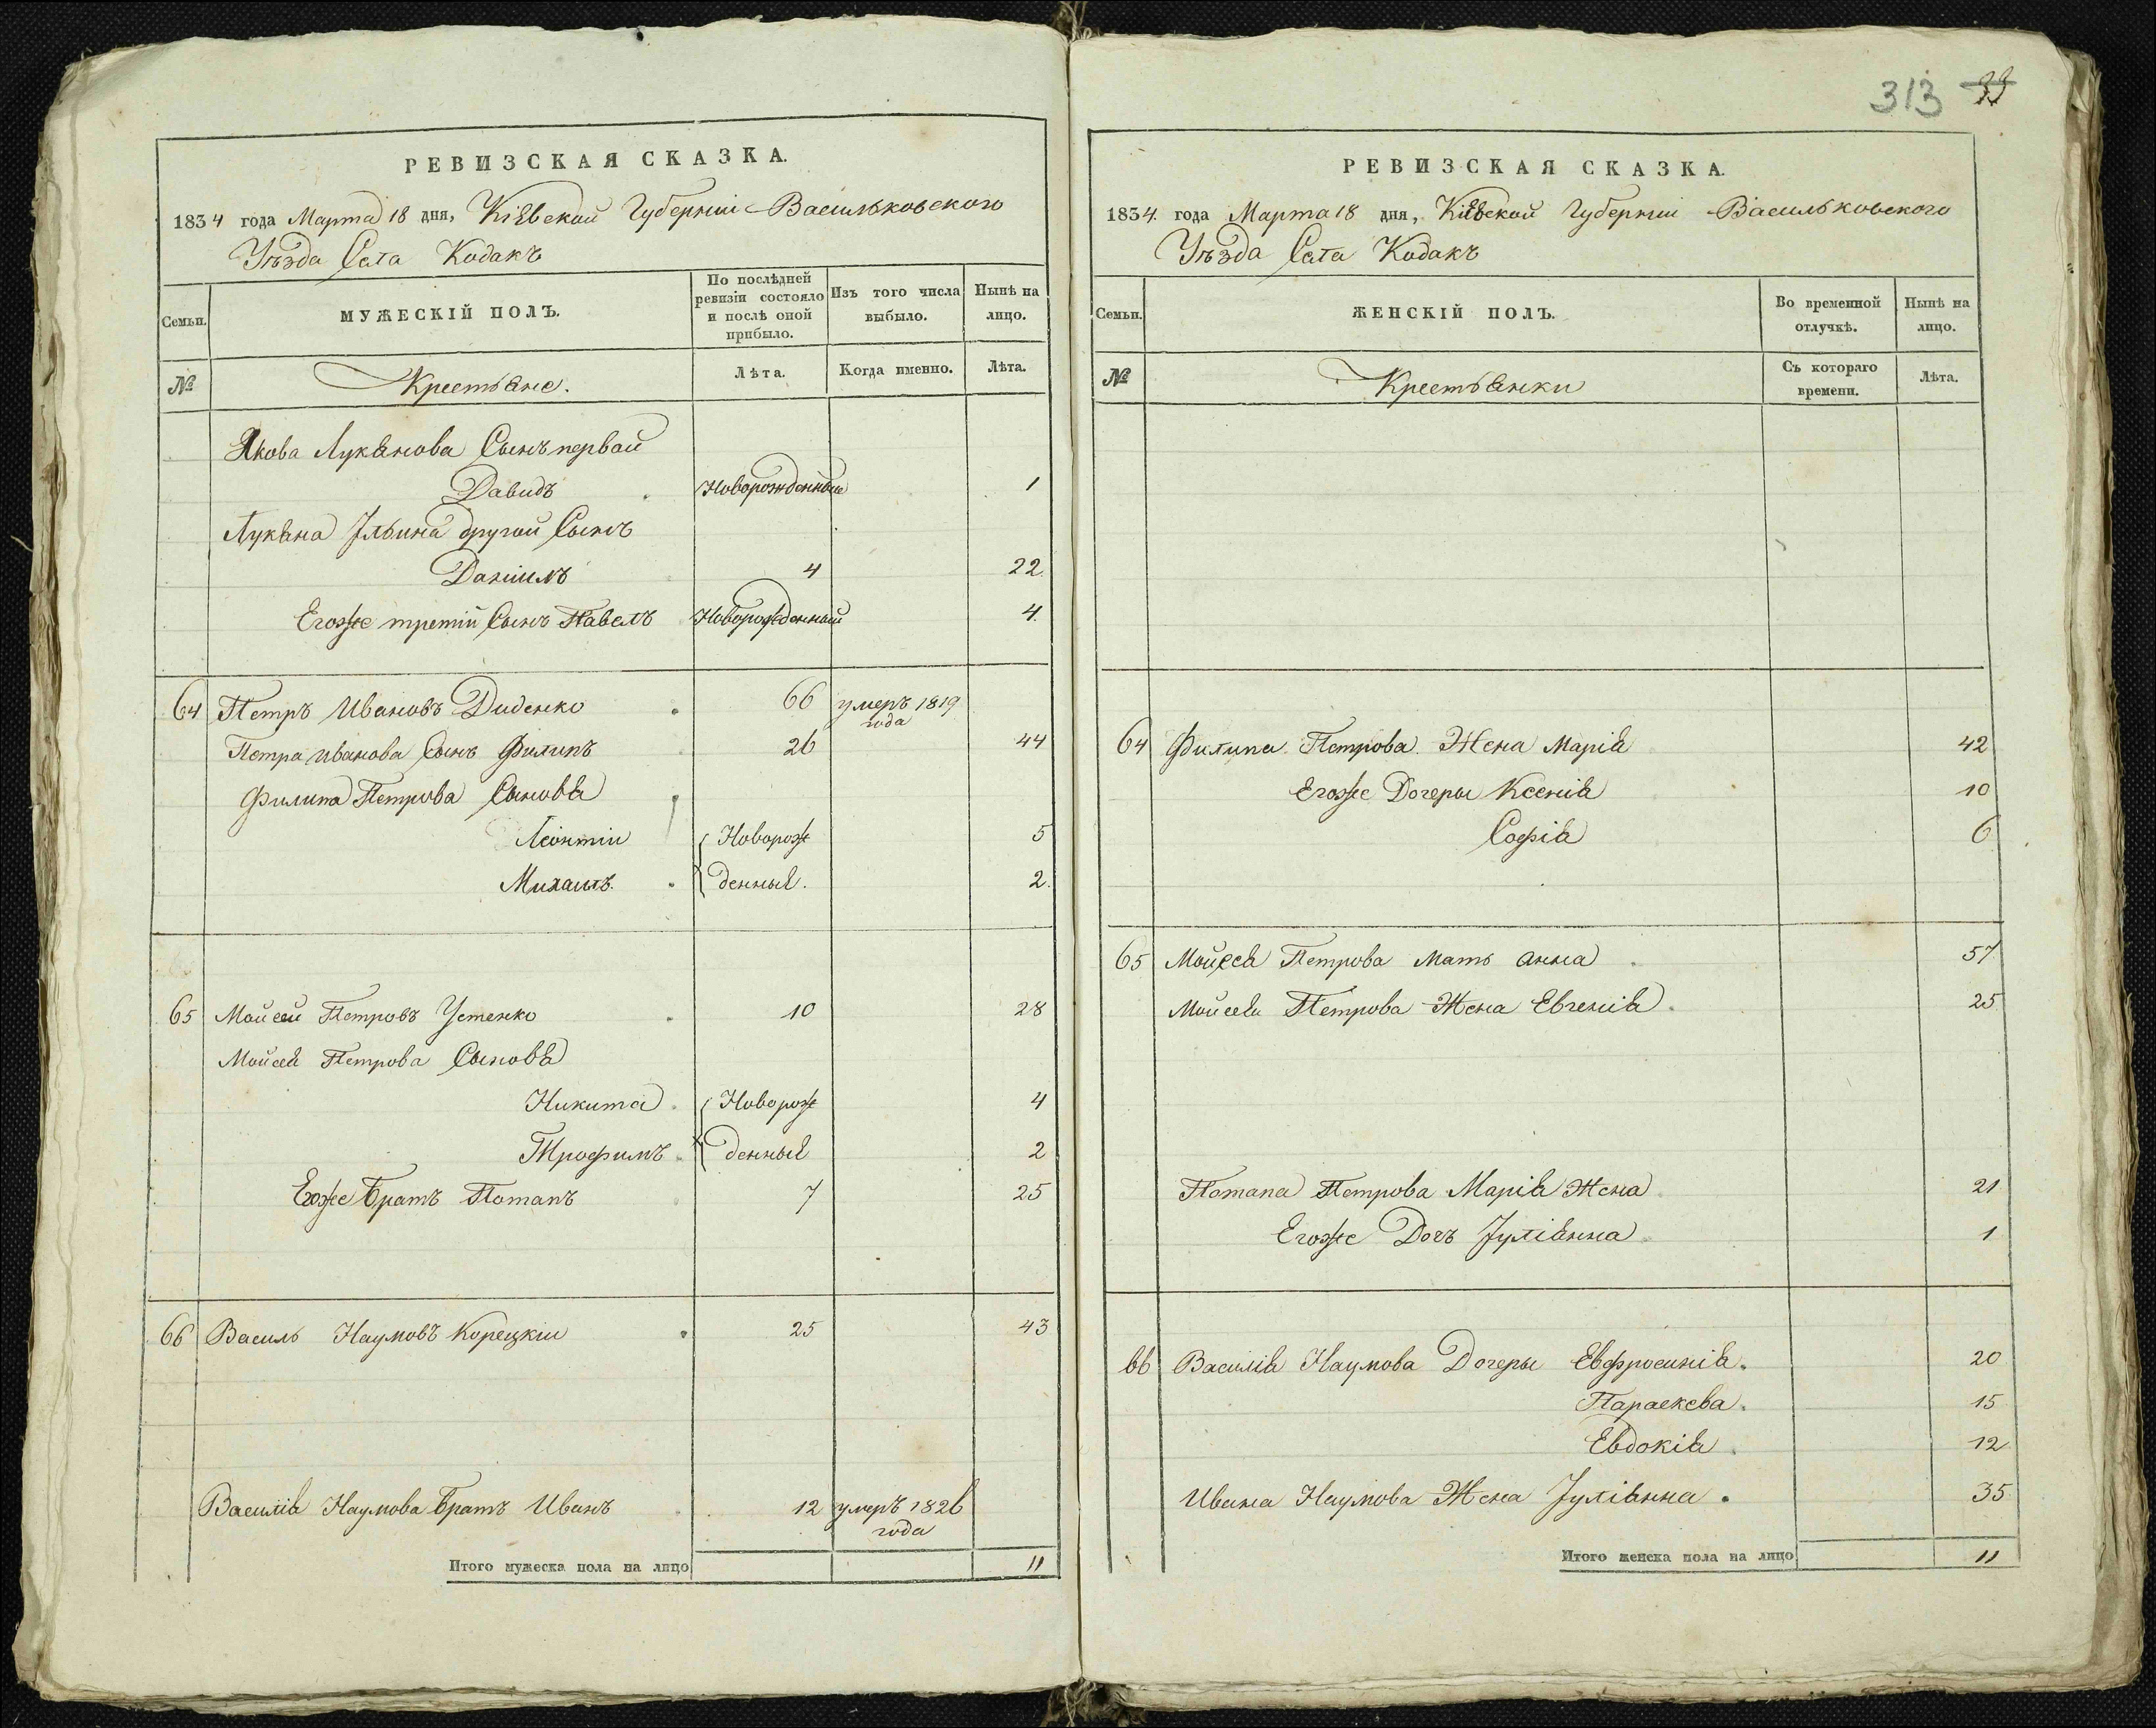 313 33
РЕВИЗСКАЯ СКАЗКА.
1834 года Марта 18 дня, Кіевской Губерніи Васильковского
Уѣзда Села Кодакъ
Семьи.
МУЖЕСКІЙ ПОЛЪ.
По послѣдней ревизіи состояло и послѣ оной прибыло.
Изъ того числа выбыло.
Нынѣ на лицо.
№
Крестьяне.
Лѣта.
Когда именно.
Лѣта.
Якова Лукянова Сынъ первой
Давидъ Новорожденные 1
Лукяна Ильина другой Сынъ
Даніилъ 4 22
Егоже третій Сынъ Павелъ Новорожденный 4
64 Петръ Ивановъ Диденко 66 умеръ 1819 года
Петра Иванова Сынъ Филипъ 26 44
Филипа Петрова Сыновя
Леонтіи Новорож 5
Михаилъ денные. 2
65 Мойсей Петровъ Устенко 10 28
Мойсея Петрова Сыновя
Никита Новорож 4
Трофимъ денные 2
Егоже Братъ Потапъ 7 25
66 Василь Наумовъ Корецкіи 25 43
Василія Наумова Братъ Иванъ 12 умеръ 1826 года
Итого мужеска пола на лицо 11
РЕВИЗСКАЯ СКАЗКА.
1834 года Марта 18 дня, Кіевской Губерніи Васильковского
Уѣзда Села Кодакъ
Семьи.
ЖЕНСКІЙ ПОЛЪ.
Во временной отлучкѣ.
Нынѣ на лицо.
№
Крестьянки
Съ котораго времени.
Лѣта.
64 Филипа Петрова Жена Марія 42
Егоже Дочеры Ксенія 10
Софія 6
65 Мойсея Петрова Мать Анна 57
Мойсея Петрова Жена Евгенія 25
Потапа Петрова Марія Жена 21
Егоже Дочъ Іуліянна 1
66 Василія Наумова Дочеры Евфросинія. 20
Параскева. 15
Евдокія 12
Ивана Наумова Жена Іуліянна. 35
Итого женска пола на лицо 11